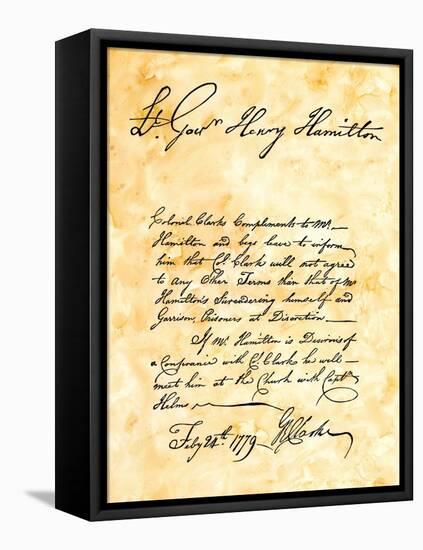 Lt. Govr. Henry Hamilton
Colonel Clarks Compliments to Mr.
Hamilton and begs leave to inform
him that Col. Clark will not agree
to any Other Terms than that of Mr
Hamilton's Surendering himself and
Garrison, Prisoners at Discretion.
If Mr. Hamilton is Desirous of
a Conferance with Col. Clarks he will
meet him at the Church with Captn
Helms
Feby 24th. 1779 GR Clarke